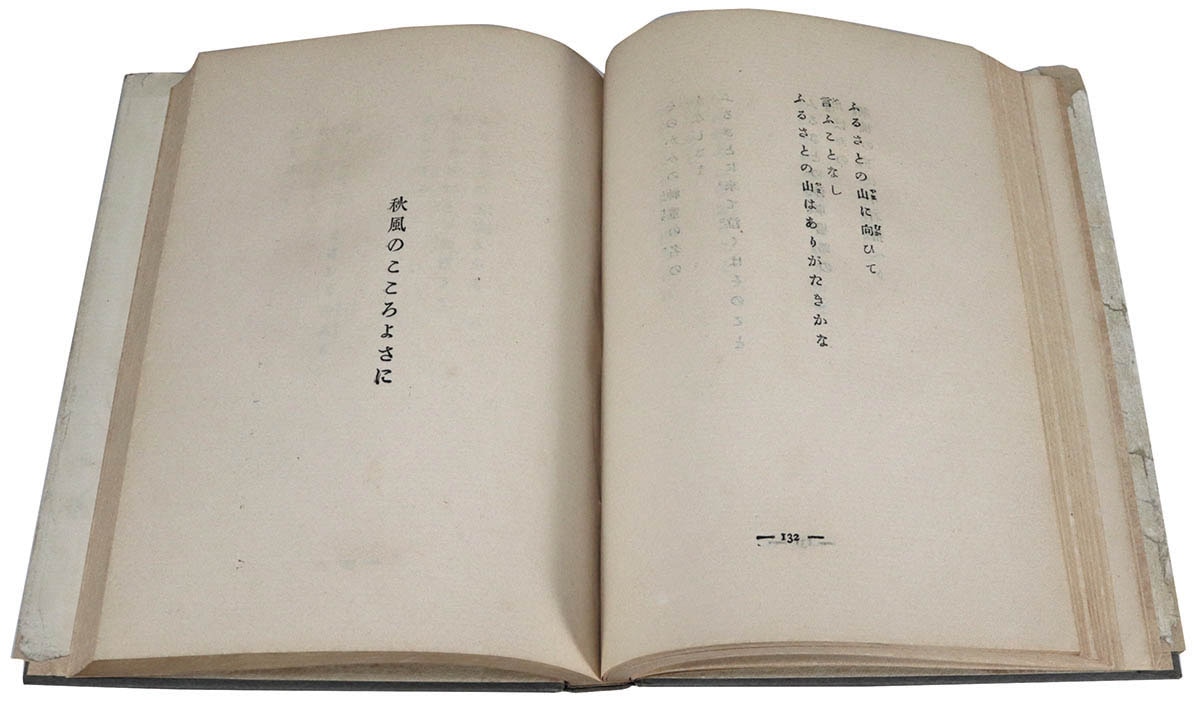 ふるさとの山に向ひて
言ふことなし
ふるさとの山はありがたきかな
132
秋風のこころよさに